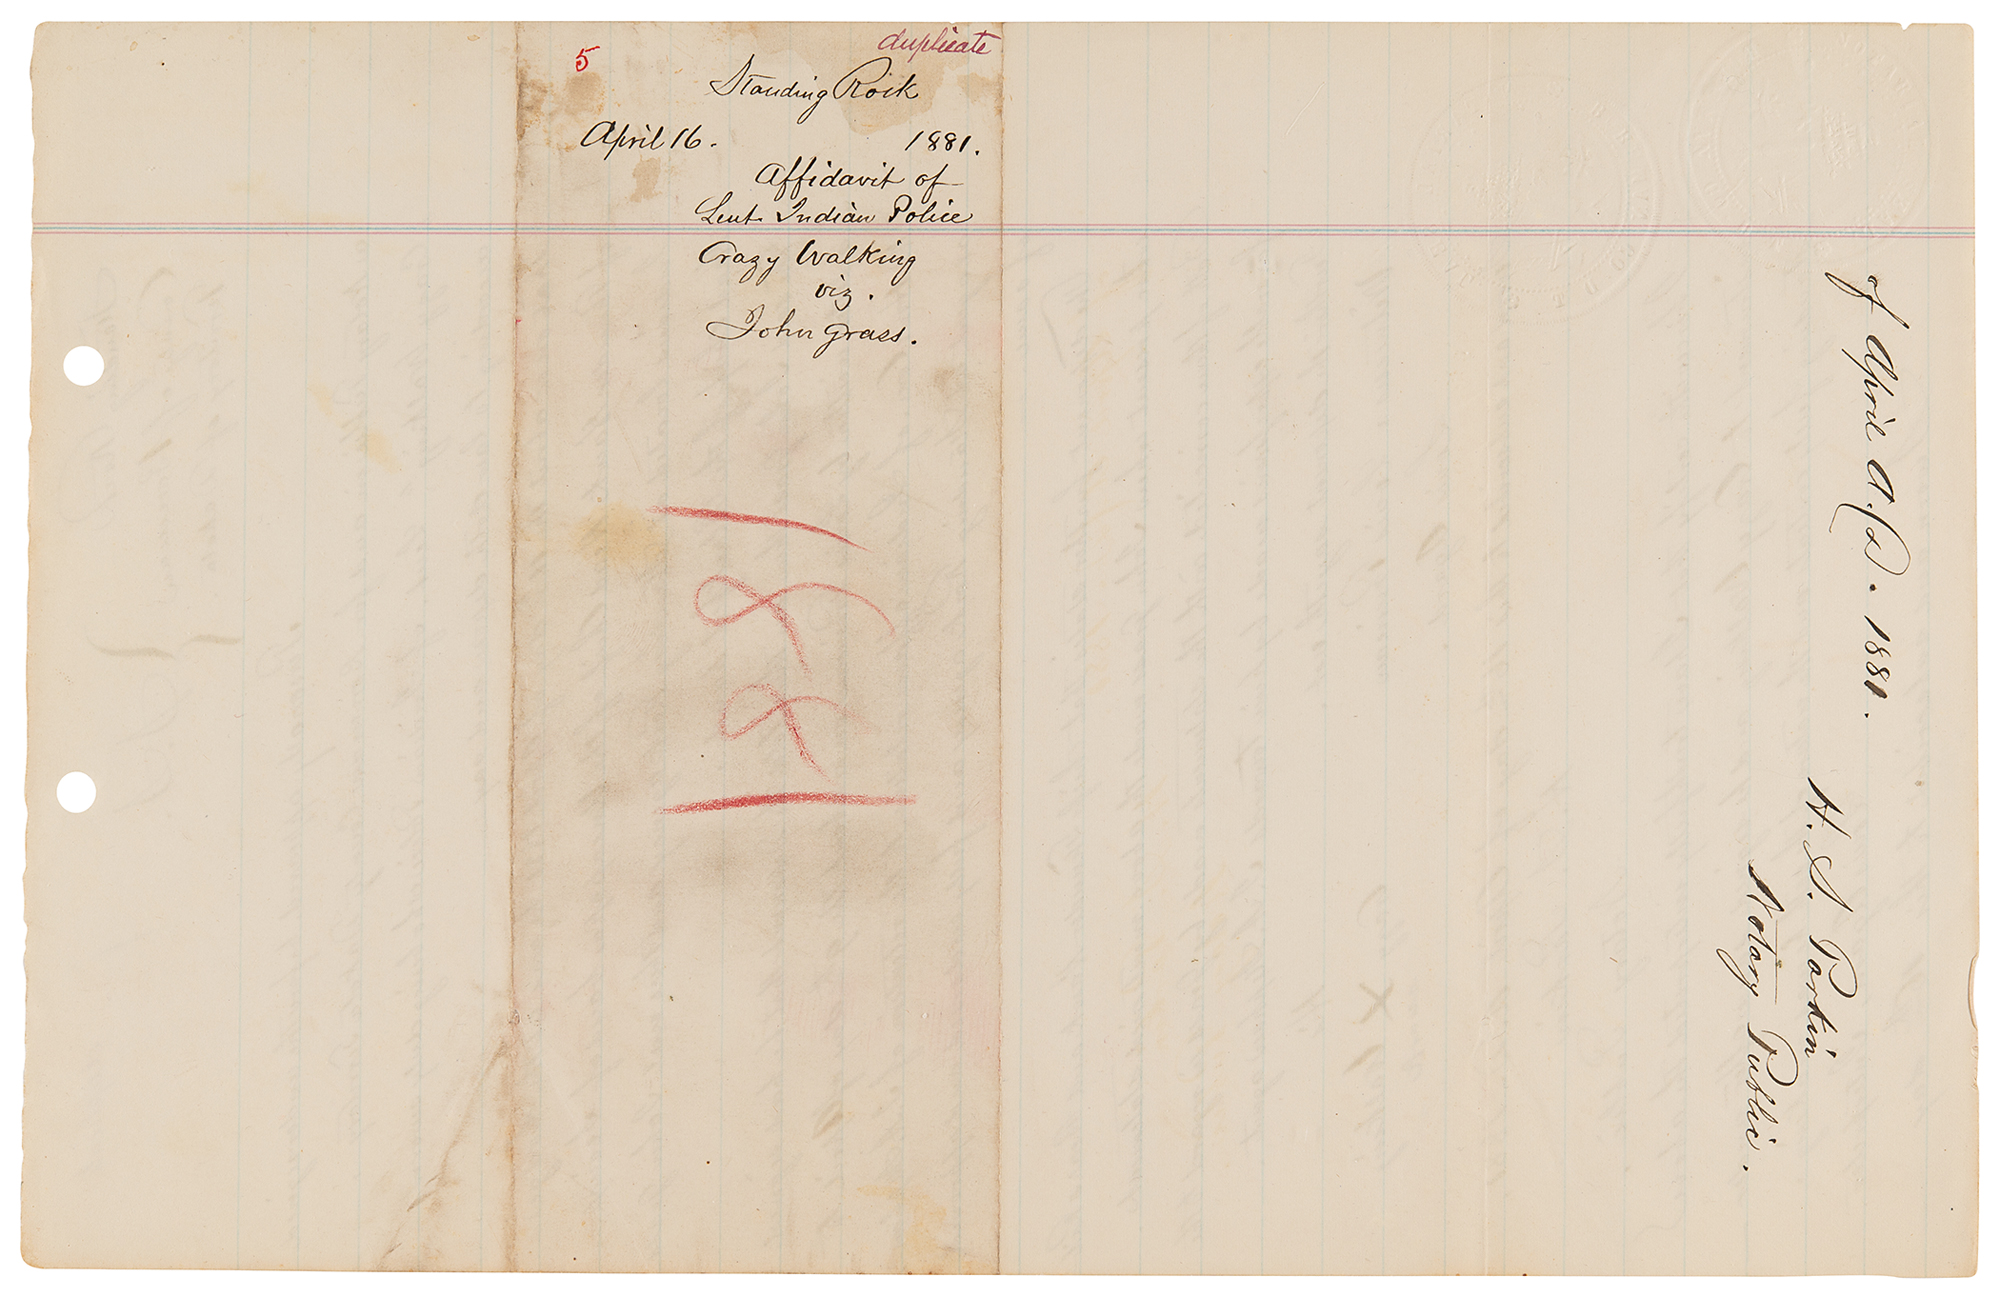 duplicate
5
Standing Rock
April 16. 1881.
Affidavit of
Leut. Indian Police
Crazy Walking
viz.
John Grass.
1881
of April A.D. 1881.
H. S. Parkin
Notary Public.